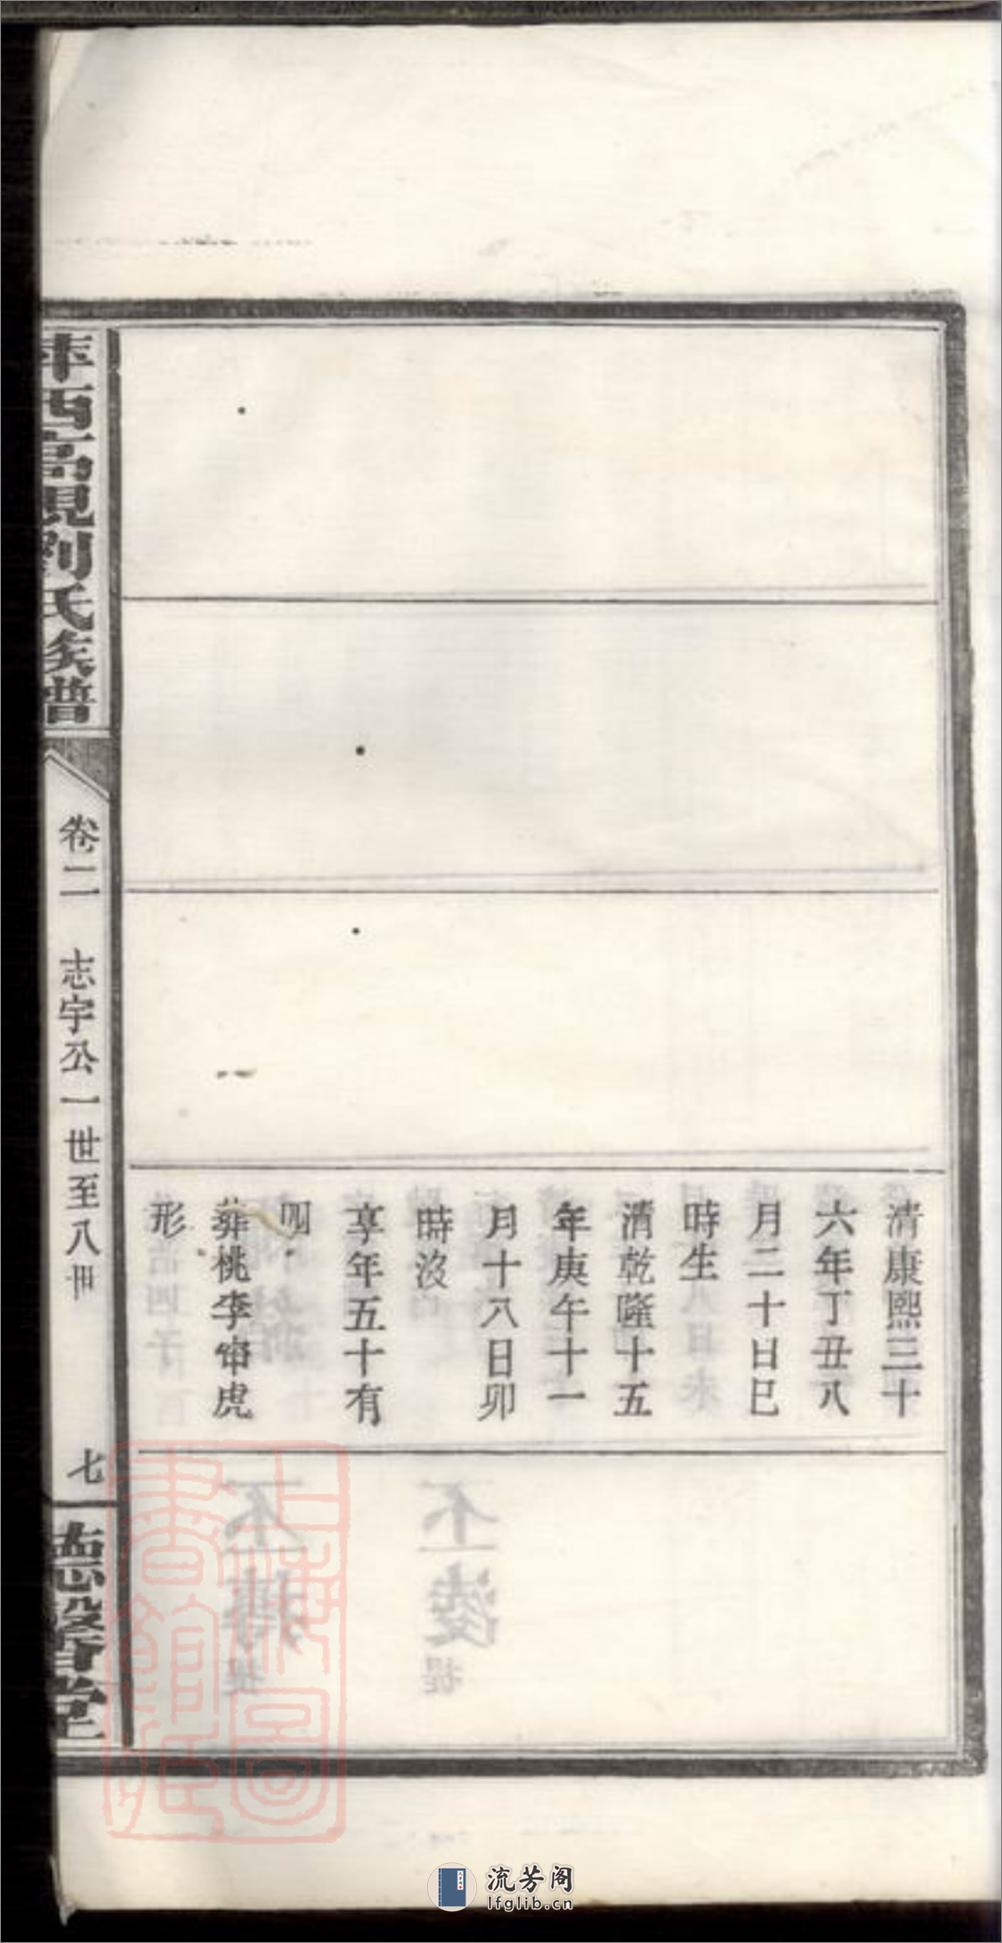 清康熙三十
六年丁丑八
月二十日巳
時生
清乾隆十五
年庚午十一
月十八日卯
時沒
享年五十有
四
葬桃李窜虎
形
萍西高視劉氏族譜
卷二 志宇公一世至八世 七
德馨堂
上海圖書館藏
流芳阁
lfglib.cn